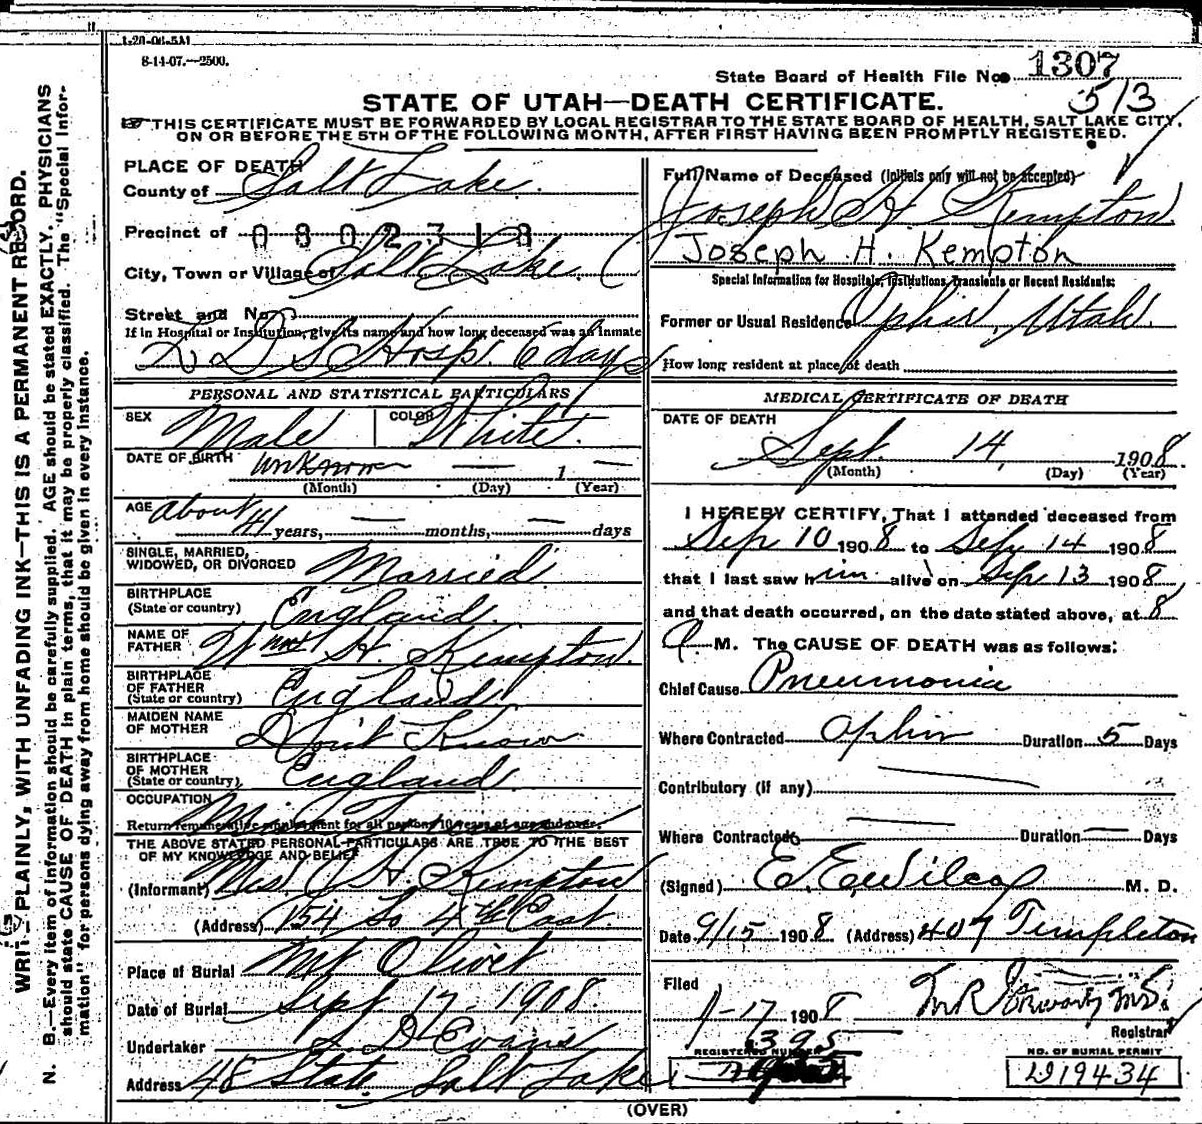 1-20-06-5A1
8-14-07.—2500.
State Board of Health File No. 1307
513
STATE OF UTAH—DEATH CERTIFICATE.
THIS CERTIFICATE MUST BE FORWARDED BY LOCAL REGISTRAR TO THE STATE BOARD OF HEALTH, SALT LAKE CITY,
ON OR BEFORE THE 5TH OF THE FOLLOWING MONTH, AFTER FIRST HAVING BEEN PROMPTLY REGISTERED.
WRITE PLAINLY, WITH UNFADING INK—THIS IS A PERMANENT RECORD.
N. B.—Every item of information should be carefully supplied. AGE should be stated EXACTLY. PHYSICIANS
should state CAUSE OF DEATH in plain terms, that it may be properly classified. The "Special Infor-
mation" for persons dying away from home should be given in every instance.
PLACE OF DEATH
County of Salt Lake.
Precinct of 0802318
City, Town or Village of Salt Lake.
Street and No.
If in Hospital or Institution, give its name and how long deceased was an inmate
L D S Hosp. 6 days
PERSONAL AND STATISTICAL PARTICULARS
SEX Male COLOR White.
DATE OF BIRTH unknown — 1 —
(Month) (Day) (Year)
AGE about 41 years, — months, — days
SINGLE, MARRIED,
WIDOWED, OR DIVORCED Married.
BIRTHPLACE
(State or country) England.
NAME OF
FATHER Wm H. Kempton.
BIRTHPLACE
OF FATHER
(State or country) England
MAIDEN NAME
OF MOTHER Don't Know.
BIRTHPLACE
OF MOTHER
(State or country) England.
OCCUPATION
Return remunerative employment for all persons 10 years of age and over.
THE ABOVE STATED PERSONAL PARTICULARS ARE TRUE TO THE BEST
OF MY KNOWLEDGE AND BELIEF
(Informant) Mrs. J. H. Kempton
(Address) 154 So 4th East.
Place of Burial Mt Olivet
Date of Burial Sept 17-1908.
Undertaker S. D. Evans
Address 48 State. Salt Lake
Full Name of Deceased (Initials only will not be accepted)
Joseph H. Kempton
Joseph H. Kempton
Special Information for Hospitals, Institutions, Transients or Recent Residents:
Former or Usual Residence Ophir, Utah.
How long resident at place of death
MEDICAL CERTIFICATE OF DEATH
DATE OF DEATH
Sept. 14, 1908.
(Month) (Day) (Year)
I HEREBY CERTIFY, That I attended deceased from
Sep 10 1908 to Sep 14 1908
that I last saw him alive on Sep 13 1908,
and that death occurred, on the date stated above, at 8
A M. The CAUSE OF DEATH was as follows:
Chief Cause Pneumonia
Where Contracted Ophir Duration 5 Days
Contributory (if any) —
Where Contracted — Duration — Days
(Signed) E. E. Wilcox M. D.
Date 9/15 1908 (Address) 407 Templeton
Filed
9-17 1908
Registrar
395
REGISTERED NUMBER
NO. OF BURIAL PERMIT
D19434
(OVER)